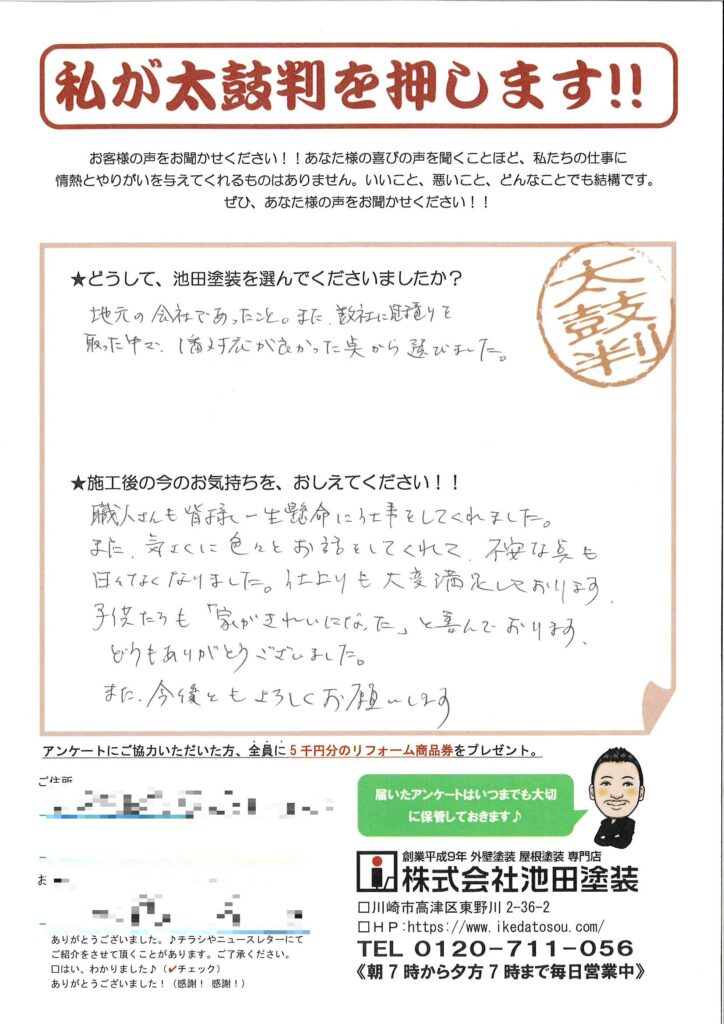 私が太鼓判を押します!!
お客様の声をお聞かせください！！あなた様の喜びの声を聞くことほど、私たちの仕事に
情熱とやりがいを与えてくれるものはありません。いいこと、悪いこと、どんなことでも結構です。
ぜひ、あなた様の声をお聞かせください！！
太鼓判
★どうして、池田塗装を選んでくださいましたか？
地元の会社であったこと。また、数社に見積りを
取った中で、1番対応が良かった点から選びました。
★施工後の今のお気持ちを、おしえてください！！
職人さんも皆様、一生懸命に仕事をしてくれました。
また、気さくに色々とお話をしてくれて、不安な点も
日々なくなりました。仕上りも大変満足しております。
子供たちも「家がきれいになった」と喜んでおります。
どうもありがとうございました。
また、今後ともよろしくお願いします
アンケートにご協力いただいた方、全員に5千円分のリフォーム商品券をプレゼント。
ご住所
届いたアンケートはいつまでも大切
に保管しておきます♪
お
創業平成9年 外壁塗装 屋根塗装 専門店
株式会社池田塗装
□川崎市高津区東野川2-36-2
□HP:https://www.ikedatosou.com/
TEL 0120-711-056
《朝7時から夕方7時まで毎日営業中》
ありがとうございました。♪チラシやニュースレターにて
ご紹介をさせて頂くことがあります。ご了承ください。
□はい、わかりました♪（✓チェック）
ありがとうございました！（感謝！感謝！）